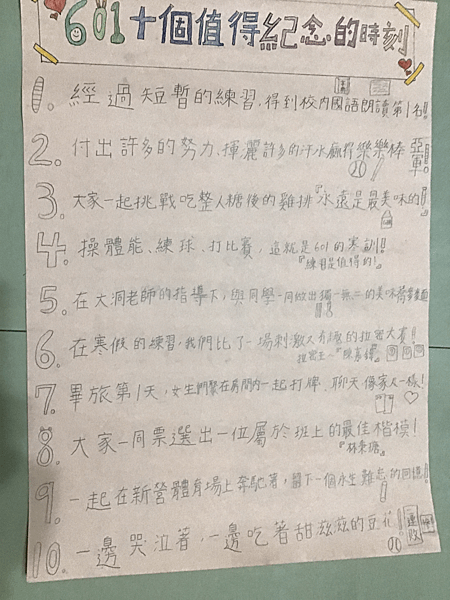 601十個值得紀念的時刻
1. 經過短暫的練習，得到校內國語朗讀第1名!!
2. 付出許多的努力、揮灑許多的汗水贏得樂樂棒亞軍!!
3. 大家一起挑戰吃整人糖後的雞排『永遠是最美味的』!!
4. 操體能、練球、打比賽，這就是601的寒訓!!
『練習是值得的!』
5. 在大洞老師的指導下，與同學一同做出獨一無二的美味
6. 在寒假的練習，我們比了一場刺激又有趣的拉密大賽!
拉密王~
7. 畢旅第1天，女生們聚在房間內一起打牌、聊天像家人一樣!
8. 大家一同票選出一位屬於班上的最佳楷模!
9. 一起在新營體育場上奔馳著，留下一個永生難忘的回憶!
10. 一邊哭泣著，一邊吃著甜滋滋的豆花!